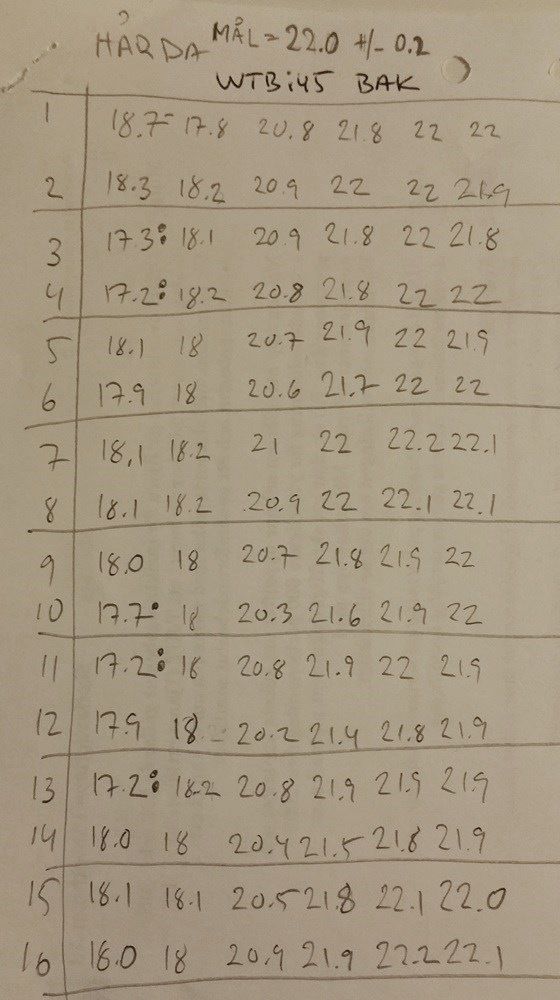 HÅRDA MÅL = 22.0 +/- 0.2
WTB i45 BAK
1 18.7- 17.8 20.8 21.8 22 22
2 18.3 18.2 20.9 22 22 21.9
3 17.3: 18.1 20.9 21.8 22 21.8
4 17.2: 18.2 20.8 21.8 22 22
5 18.1 18 20.7 21.9 22 21.9
6 17.9 18 20.6 21.7 22 22
7 18,1 18.2 21 22 22.2 22.1
8 18.1 18.2 20.9 22 22.1 22.1
9 18.0 18 20.7 21.8 21.9 22
10 17.7• 18 20.3 21.6 21.9 22
11 17.2: 18 20.8 21.9 22 21.9
12 17.9 18 20.2 21.4 21.8 21.9
13 17.2: 18.2 20.8 21.9 21.9 21.9
14 18.0 18 20.4 21.5 21.8 21.9
15 18.1 18.1 20.5 21.8 22.1 22.0
16 18.0 18 20.9 21.9 22.2 22.1